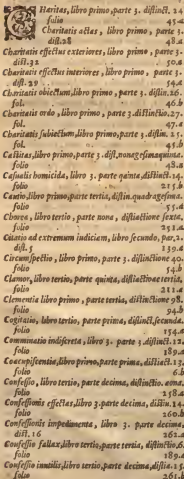 CHaritas, libro primo, parte 3. distinct. 24
folio 45.a
Charitatis actus, libro primo, parte 3.
dist. 28 48.a
Charitatis effectus exteriores, libro primo, parte 3.
dist. 32 50.a
Charitatis effectus interiores, libro primo, parte 3.
dist. 29 54.a
Charitatis obiectum, libro primo, parte 3. distin. 26.
fol. 46.b
Charitatis ordo, libro primo, parte 3. distinctio. 27.
folio 47.a
Charitatis subiectum, libro primo, parte 3. distin. 25.
fol. 45.b
Castitas, libro primo, parte 3. dist. nonagesimaquinta.
folio 48.a
Casualis homicida, libro 3. parte quinta distinct. 14.
folio 215.b
Cautio, libro primo, parte tertia, distin. quadragesima.
folio 55.a
Chorea, libro tertio, parte nona, distinctione sexta,
folio 251.a
Citatio ad extremum iudicium, libro secundo, par. 2.
dist. 5 139.a
Circunspectio, libro primo, parte 3. distinctione 40.
folio 54.b
Clamor, libro tertio, parte quinta, distinctione tertia,
folio 211.a
Clementia libro primo, parte tertia, distinctione 98.
folio 94.b
Cogitatio, libro tertio, parte prima, distinct. secunda.
folio 154.a
Comminatio indiscreta, libro 3. parte 3. distinct. 12.
folio 189.a
Concupiscentia, libro primo, parte prima, distinct. 13.
folio 6.b
Confessio, libro tertio, parte decima, distinctio.
folio 258.a
Confessionis effectus, libro 3. parte decima, distin. 14.
folio 260.b
Confessionis impedimenta, libro 3. parte decima,
distinct. 16 262.a
Confessio fallax, libro tertio, parte tertia, distinctio. 6.
folio 189.a
Confessio inutilis, libro tertio, parte decima, distin. 15.
folio 261.b